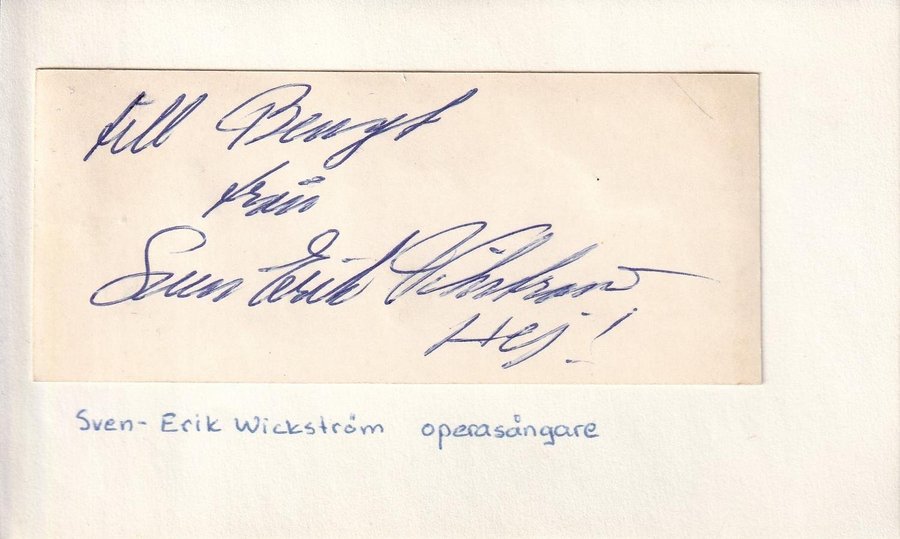 till Bengt
från
Sven Erik Vikström
Hej!
Sven-Erik Wickström operasångare